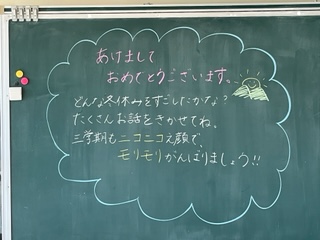 あけまして
おめでとうございます。
どんな冬休みをすごしたかな？
たくさんお話をきかせてね。
三学期もニコニコえ顔で、
モリモリがんばりましょう!!